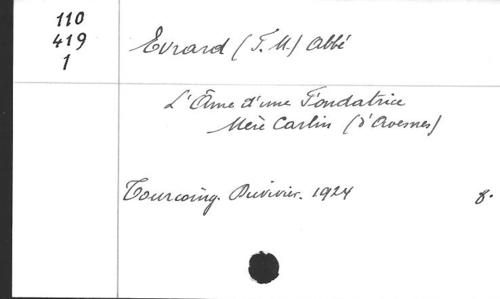 110
419
1
Evrard (F. M.) Abbé
L'Âme d'une Fondatrice
Mère Carlin (d'Avesnes)
Tourcoing. Duvivier. 1924 8.